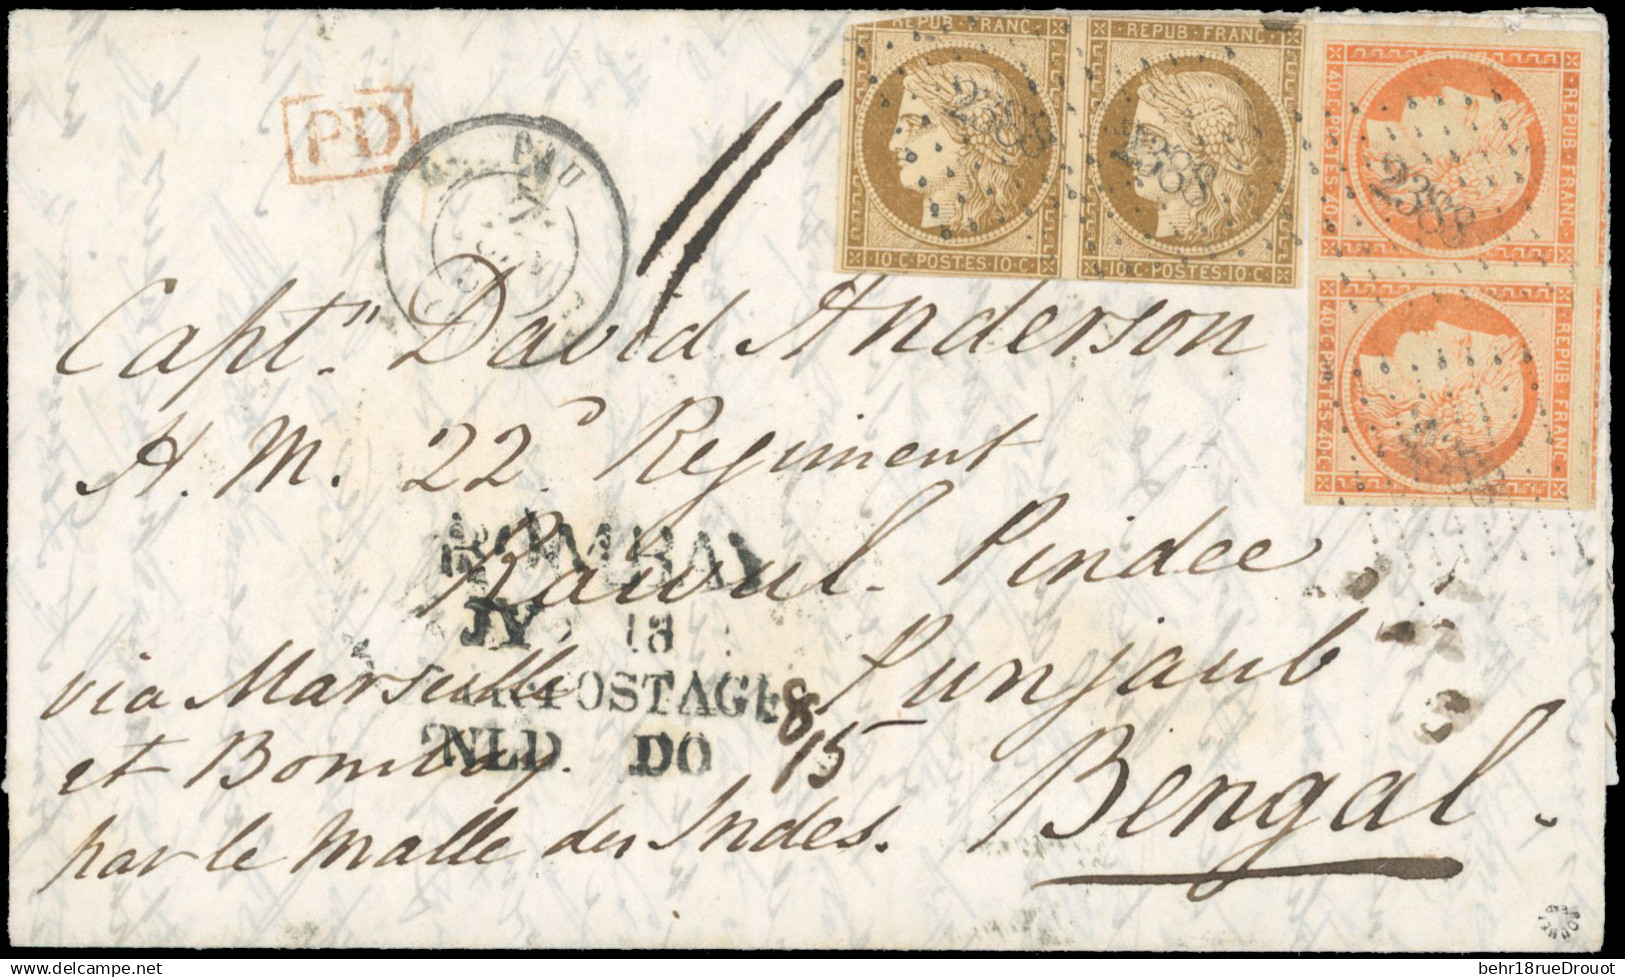 REPUB FRANC
REPUB · FRANC
10·C·POSTES·10·C
10·C·POSTES·10·C
40·C·POSTES·40·C
REPUB·FRANC
40·C·POSTES·40·C
REPUB·FRANC
2388
2388
2388
PD
PAU
11
Capt" David Anderson
H. M. 22d Regiment
Rawul Pindee
Punjaub
Bengal.
via Marseille
et Bombay.
par le Malle des Indes.
BOMBAY
JY 18
POSTAGE
INLD DO
8
15
behr18rueDrouot